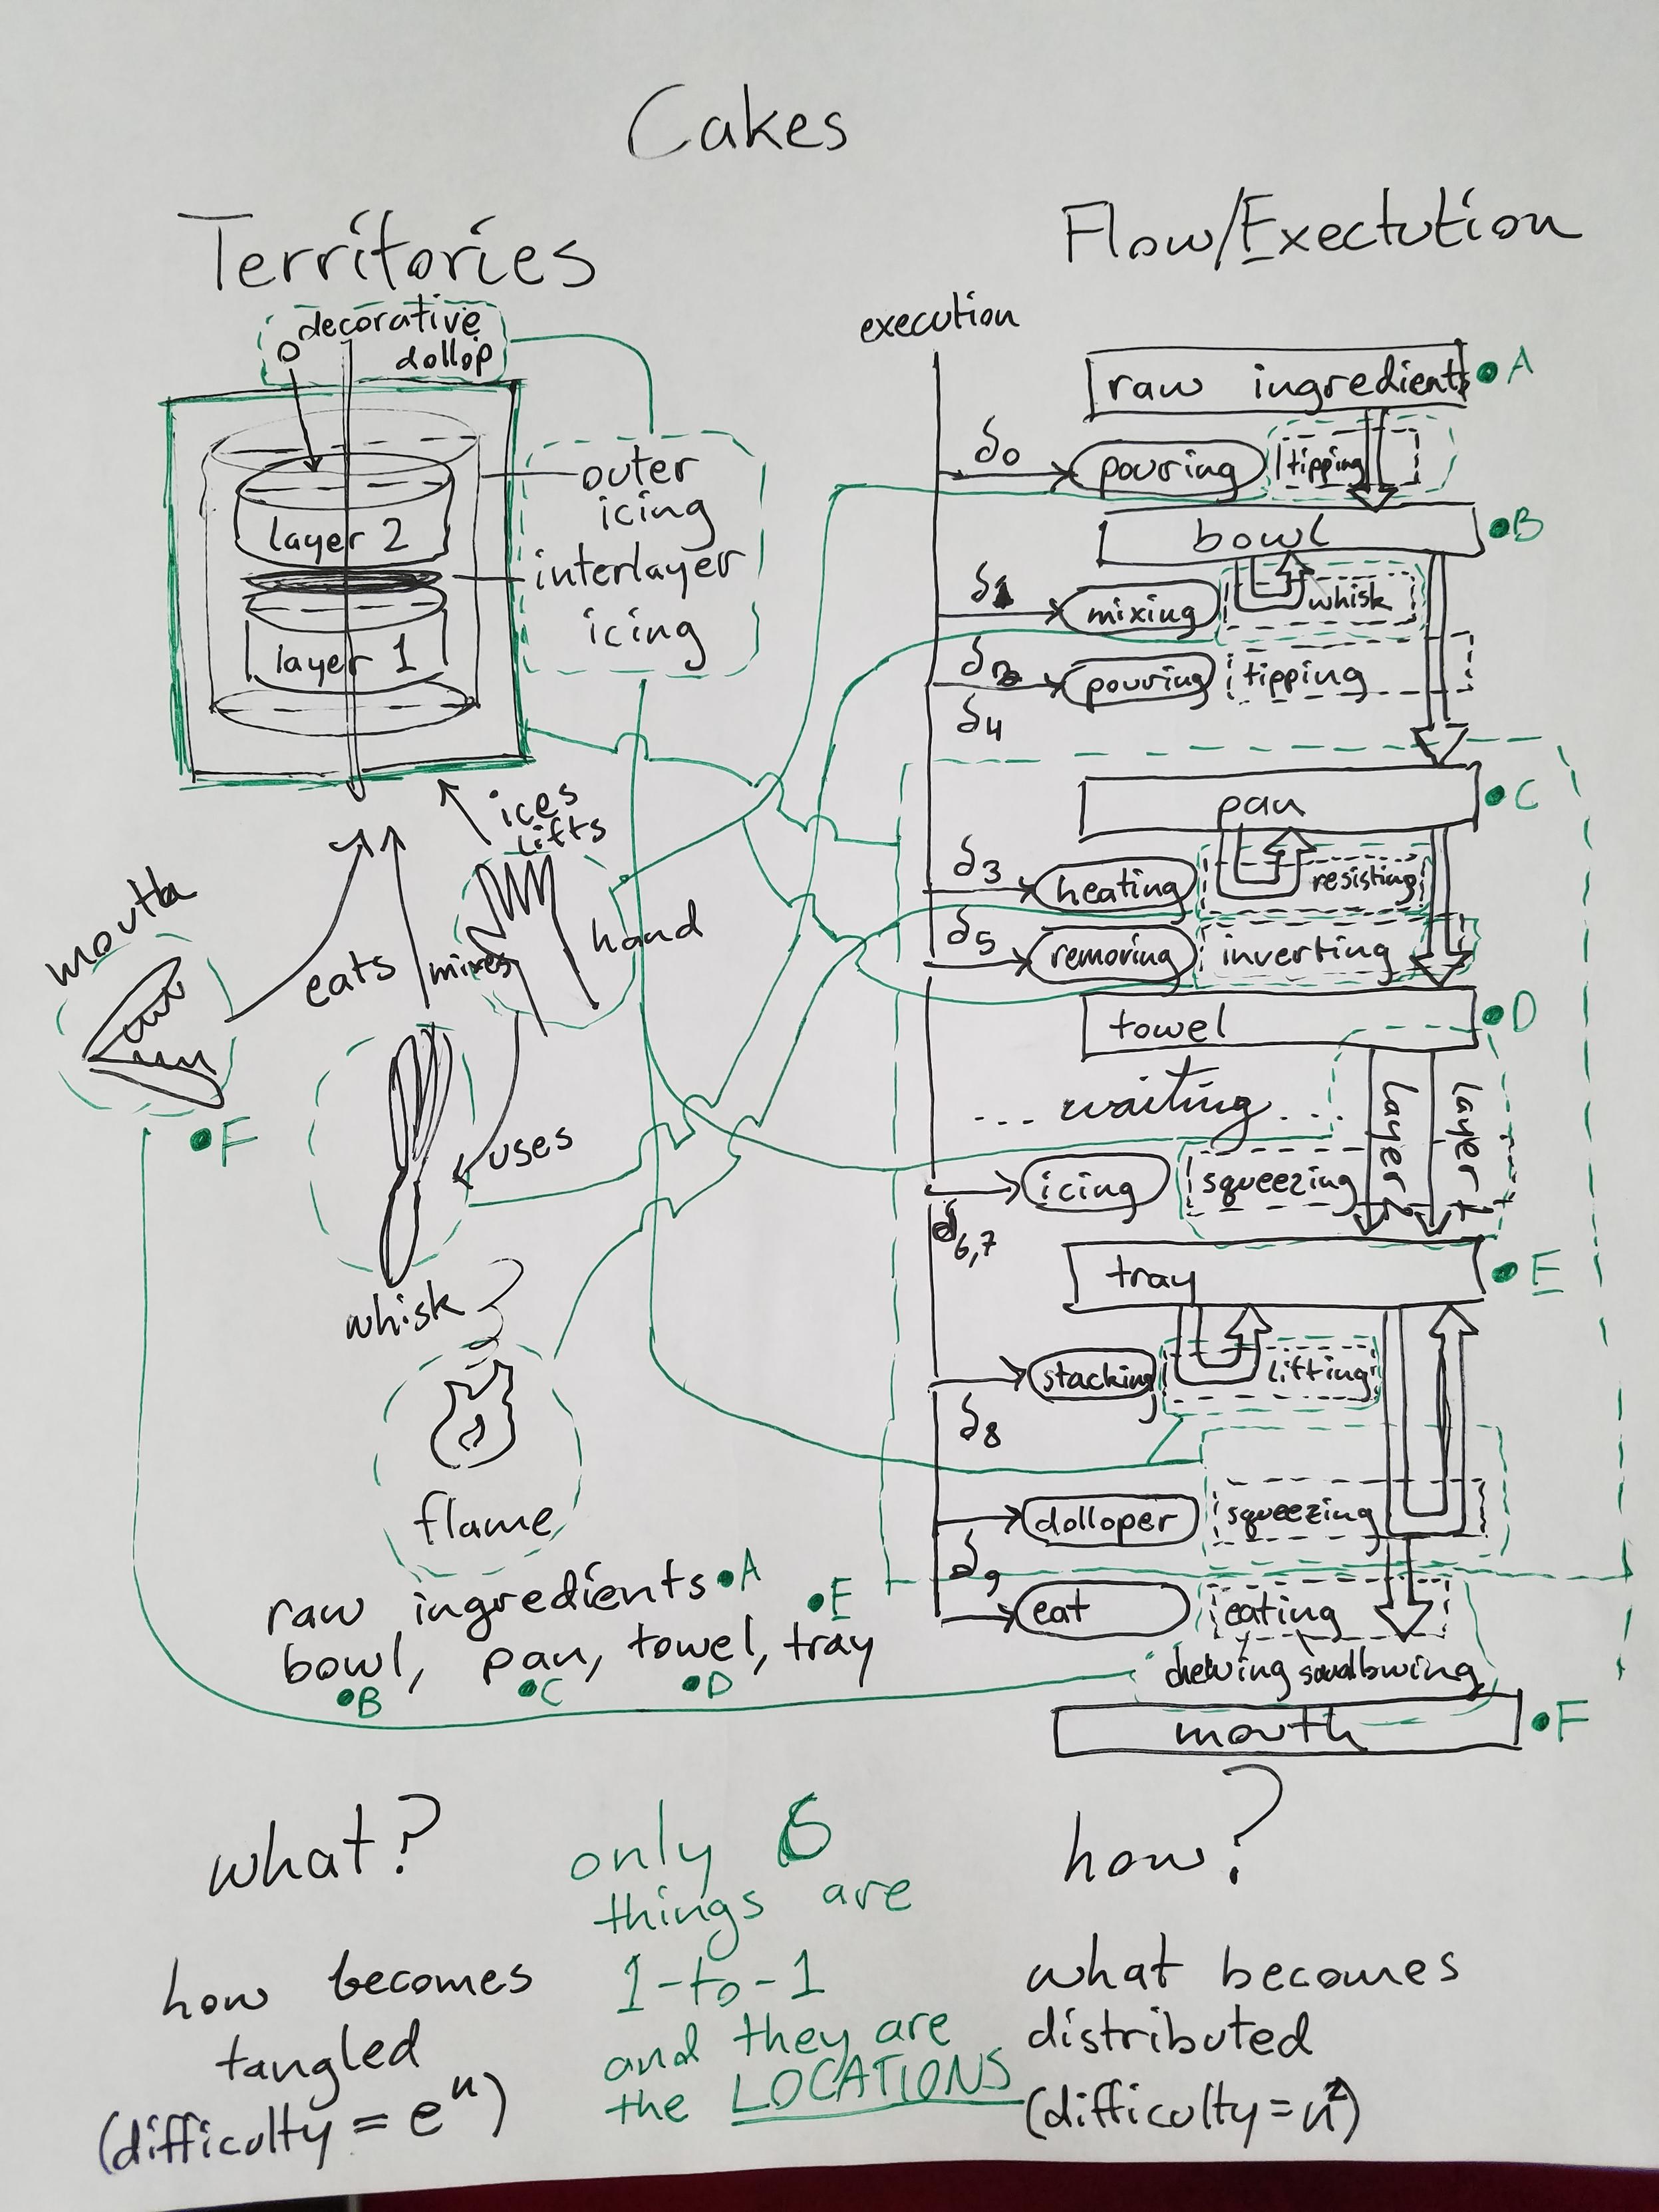 Cakes
Territories
decorative
dollop
outer
icing
interlayer
icing
layer 2
layer 1
ices
lifts
mouth
eats
mixes
hand
F
uses
whisk
flame
raw ingredients A
E
bowl, pan, towel, tray
B C D
Flow/Exectution
execution
raw ingredients
A
δ0
pouring
tipping
bowl
B
δ1
mixing
whisk
δ2
pouring
tipping
δ4
pan
C
δ3
heating
resisting
δ5
removing
inverting
towel
D
... waiting ...
layer 2
layer 1
icing
squeezing
δ6,7
tray
E
stacking
lifting
δ8
dolloper
squeezing
δ9
eat
eating
chewing swallowing
mouth
F
what?
how becomes
tangled
(difficulty = eⁿ)
only 6
things are
1-to-1
and they are
the LOCATIONS
how?
what becomes
distributed
(difficulty = n²)